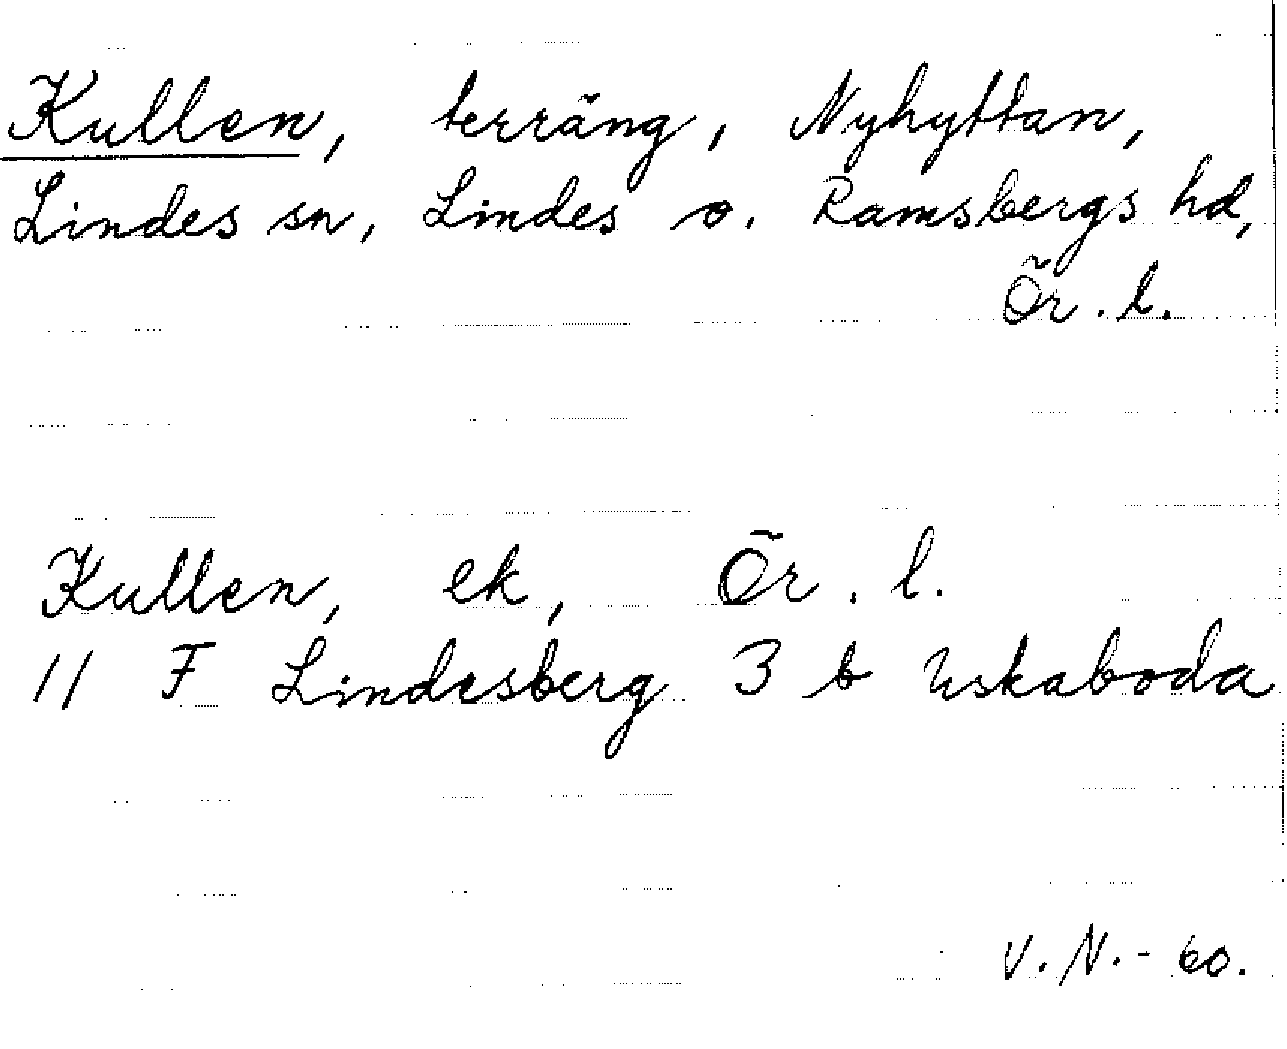 Kullen, terräng, Nyhyttan,
Lindes sn, Lindes o. Ramsbergs hd,
Ör. l.
Kullen, ek, Ör. l.
11 F Lindesberg 3 b Uskaboda
V. N. - 60.